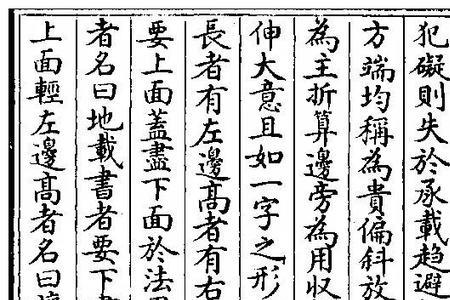 犯礙則失於承載趨避
方端均稱為貴偏斜放
為主折算邊旁為用收
伸大意且如一字之形
長者有左邊高者有右
要上面蓋盡下面於法
者名曰地載書者要下
上面輕左邊高者名曰